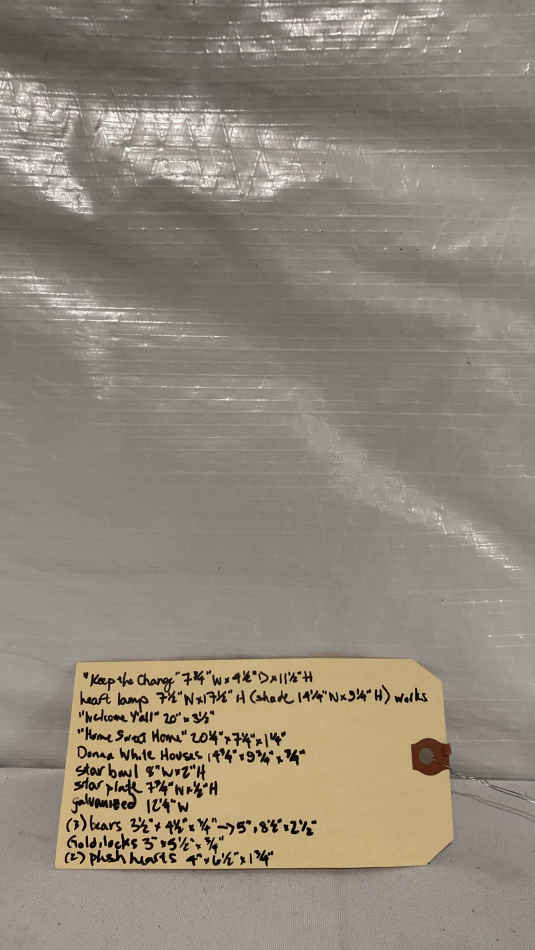 "Keep the Change" 7¾" W x 4½" D x 11½" H
heart lamp 7½" W x 17½" H (shade 14¼" W x 9¼" H) works
"Welcome Y'all" 20" x 3½"
"Home Sweet Home" 20¼" x 7¼" x 1¼"
Donna White Houses 14¾" x 9¾" x ¾"
star bowl 8" W x 2" H
star plate 7¾" W x ½" H
galvanized 12¼" W
(3) bears 3½" x 4½" x ¾" → 5" x 8½" x 2½"
Goldilocks 3" x 5½" x ¾"
(2) plush hearts 4" x 6½" x 1¾"